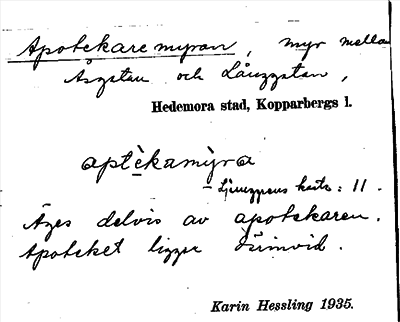 Apotekaremyran, myr mellan
Åsgatan och Långgatan,
Hedemora stad, Kopparbergs l.
aptèkamỳra
- Ljunggrens karta: 11.
Äges delvis av apotekaren.
Apoteket ligger därinvid.
Karin Hessling 1935.